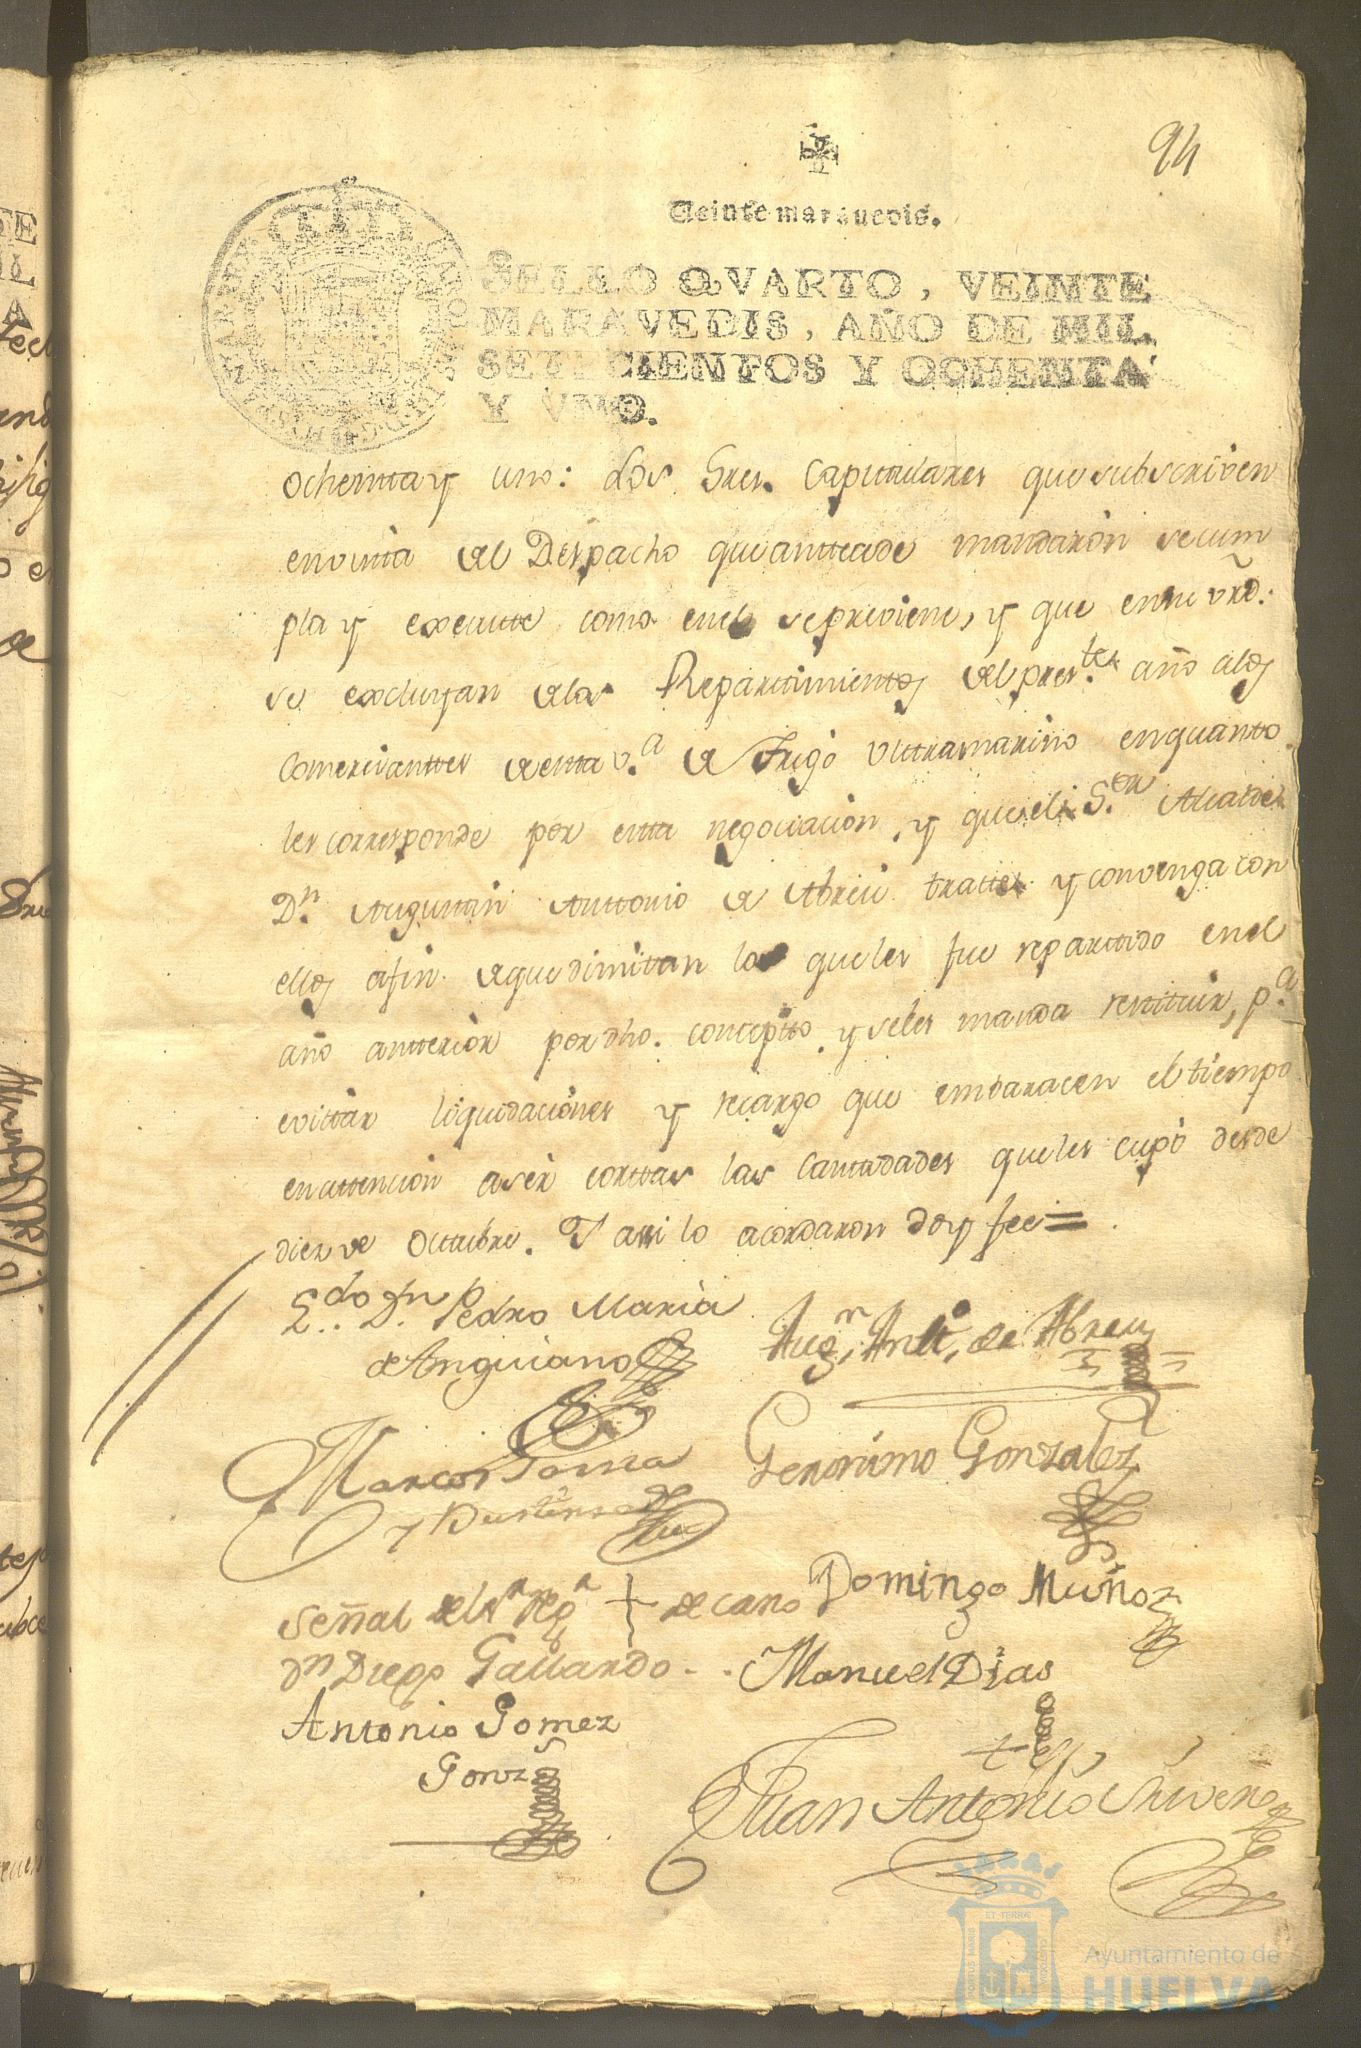 94
Veinte marauedis.
SELLO QVARTO, VEINTE
MARAVEDIS, AÑO DE MIL
SETECIENTOS Y OCHENTA
Y VNO.
ochentta y uno: Los Sres. Capitulares que subscriven
en vista del Despacho que anttecede mandaron se cum
pla y execute como en el se previene, y que en su vrd.
se excluyan de los Reparttimientos del pres.te año a los
Comerciantes de esta v.a de Trigo Ulttramarino en quanto
les corresponde por esta negociacion, y que el S.or Alcalde
D.n Augustin Anttonio de Abreu tratte y convenga con
ellos a fin de que dimitan lo que les fue reparttido en el
año antterior por dho. concepto y se les manda restituir, p.a
evittar liquidaciones y recargo que embaracen el tiempo
en attencion a ser corttas las Canttidades que les cupo desde
diez de Octubre. Y assi lo acordaron doy fee=
L.do D.n Pedro Maria
de Anguiano
Aug.n Ant.o de Abreu
Marcos
y
Geronimo Gonzalez
Señal del s.r reg.r + decano
Domingo Muñoz
dn Diego Gallardo
Manuel Dias
Antonio Gomez
Gonz
Juan Antonio
Ayuntamiento de
HUELVA